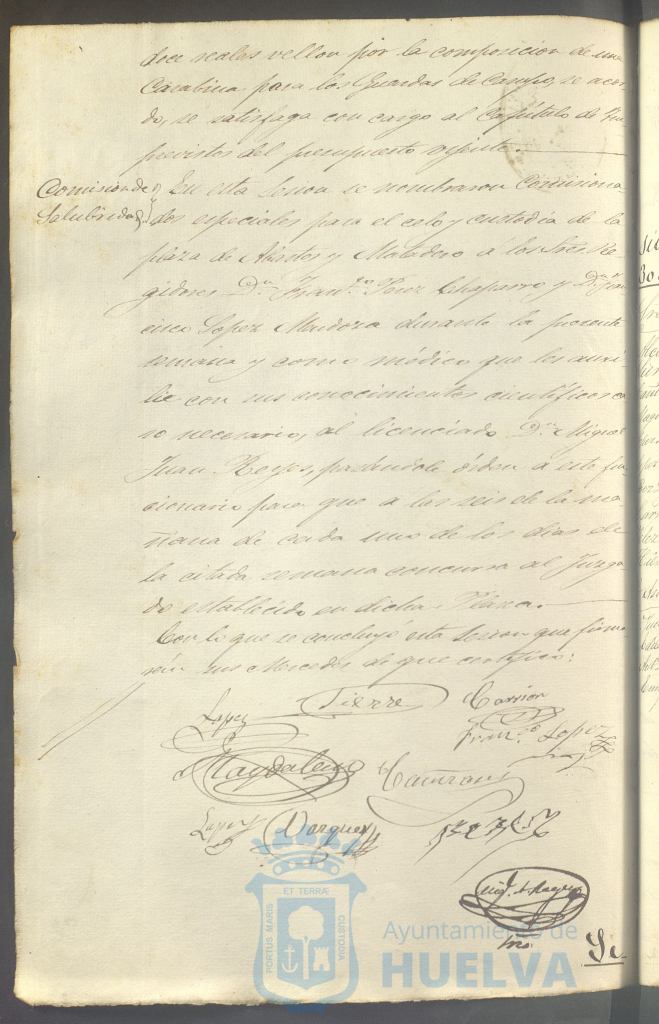 doce reales vellon por la composicion de una
Carabina para los Guardas de Campo, se acor
dó, se satisfaga con cargo al Capítulo de Im
previstos del presupuesto vigente.
Comision de
Salubridad
En esta Sesion se nombraron Comisiona
dos especiales para el celo y custodia de la
plaza de Abastos y Matadero á los Sres Re
gidores Dn. Franco. Perez Chaparro y Dn. Fran
cisco Lopez Mendoza durante la presente
semana y como médico que les auxi
lie con sus conocimientos científicos ca
so necesario, al licenciado Dn. Miguel
Juan Reyes, pasándole órden á este fun
cionario para que á las seis de la ma
ñana de cada uno de los dias de
la citada semana concurra al Juzga
do establecido en dicha Plaza.
Con lo que se concluyó esta Sesion que firma
rán sus Mercedes de que certifico:
Lopez Tierre Carrion
Franco. Lopez
Magdaleno
Lopez Vazquez
PORTUS MARIS ET TERRÆ CUSTODIA
Ayuntamiento de
HUELVA
Se